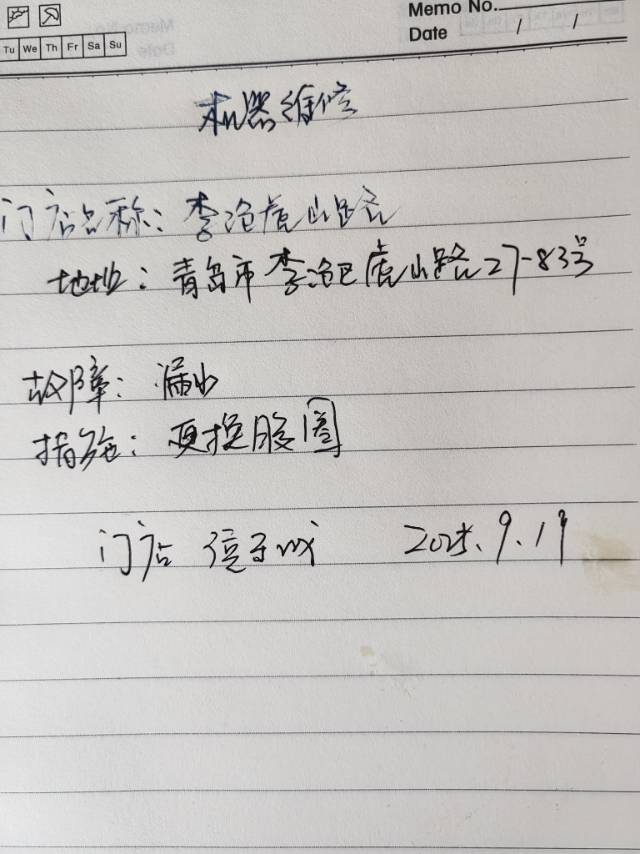 Memo No.
Tu We Th Fr Sa Su
Date / /
机器维修
门店名称：李沧虎山路
地址：青岛市李沧区虎山路27-83号
故障：漏水
措施：更换胶圈
门店 2025.9.19